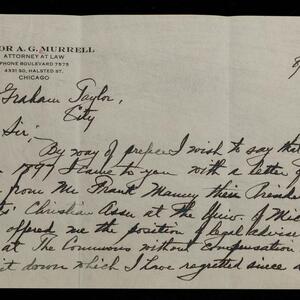 OR A. G. MURRELL
ATTORNEY AT LAW
PHONE BOULEVARD 7575
4331 SO. HALSTED ST.
CHICAGO
Graham Taylor,
City
Sir;
By way of preface I wish to say that
1897 I came to you with a letter of
from Mr Frank these Presiden
Christian Assn at The Univ. of Mic
offered me the position of legal advise
at The Commons without Compensation
it down which I have regretted since